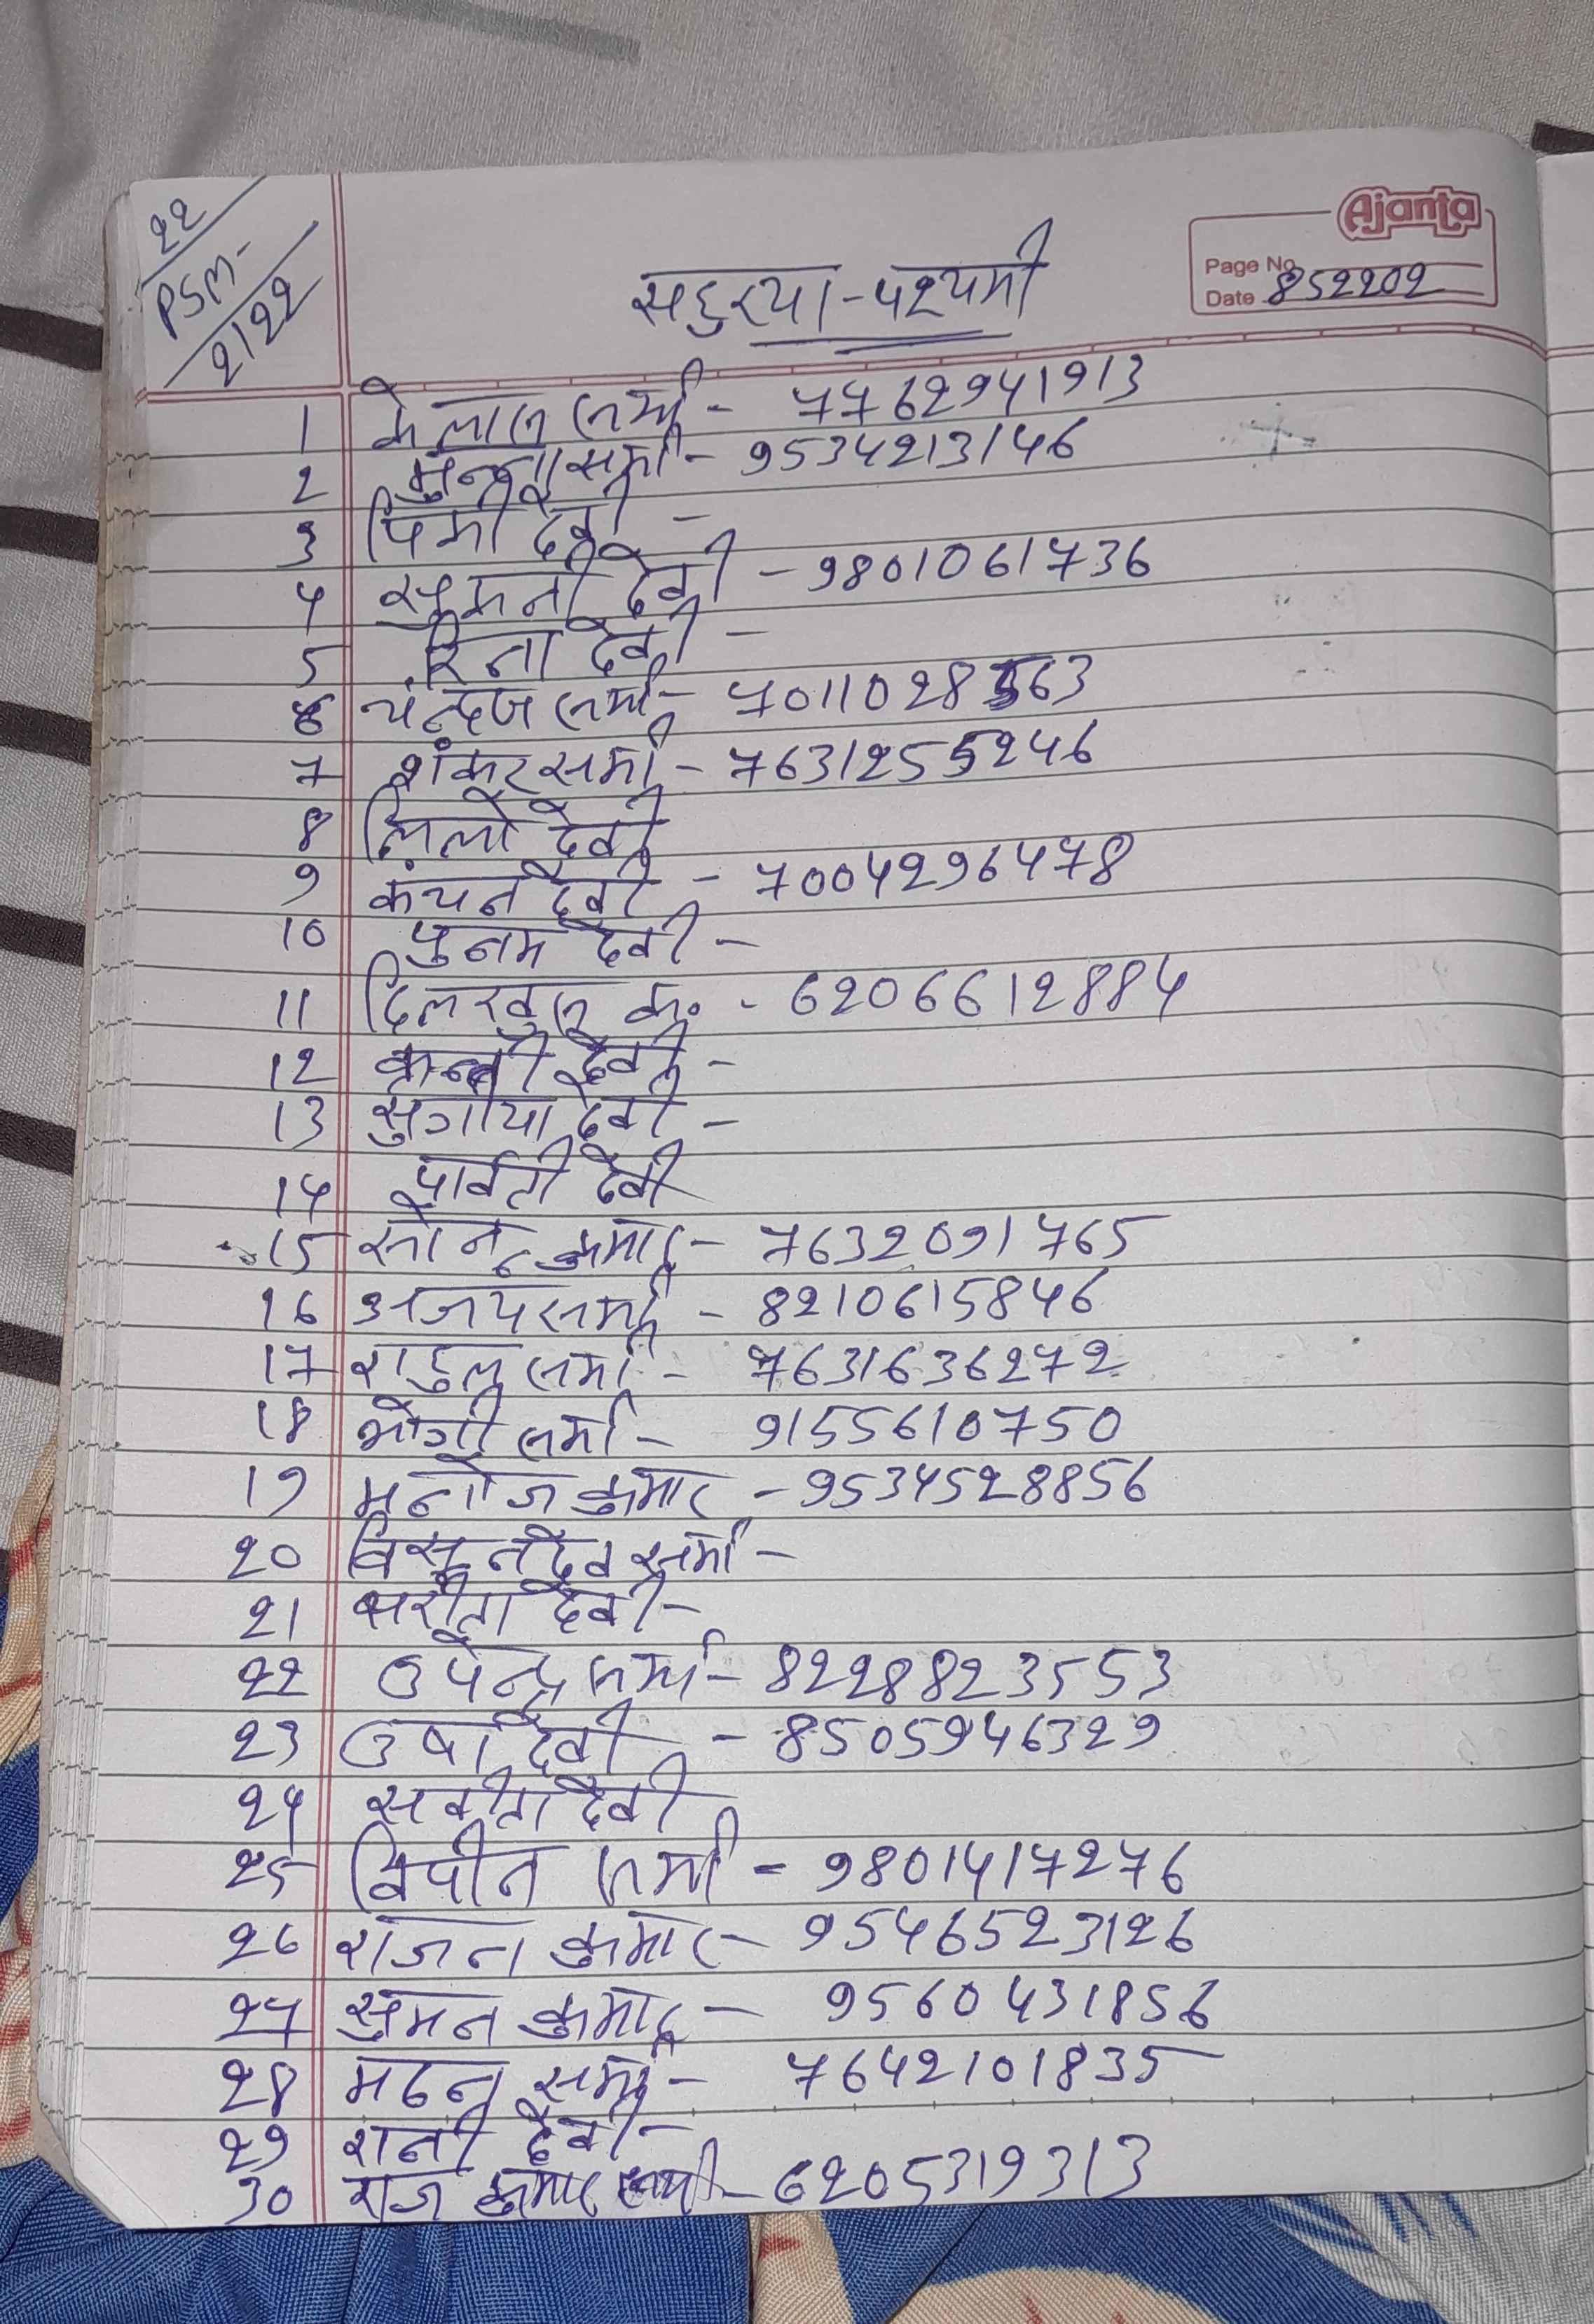 22
PSM-
2122
Ajanta
Page No.
Date 852202
सहुरया-पश्यमी
1 कैलाश शर्मा - 7762941913
2 मुन्ना सर्मा - 9534213146
3 पिंमी देवी -
4 सुमनी देवी - 9801061736
5 रिना देवी -
6 चंन्दन शर्मा - 7011028563
7 शंकर सर्मा - 7631255246
8 देवी
9 कंचन देवी - 7004296478
10 पुनम देवी -
11 दिलखुश कु॰ - 6206612884
12 देवी -
13 सुगीया देवी -
14 पार्वती देवी
15 सोनु कुमार - 7632091765
16 अजय शर्मा - 8210615846
17 राहुल शर्मा - 7631636272
18 भोगी शर्मा - 9155610750
19 मनोज कुमार - 9534528856
20 विसुनदेव शर्मा -
21 सरीता देवी -
22 उपेन्द्र शर्मा - 8228823553
23 उषा देवी - 8505946329
24 सवीता देवी
25 विपीन शर्मा - 9801417276
26 राजन कुमार - 9546523126
27 सुमन कुमार - 9560431856
28 मदन सर्मा - 7642101835
29 रानी देवी -
30 राज कुमार शर्मा - 6205319313